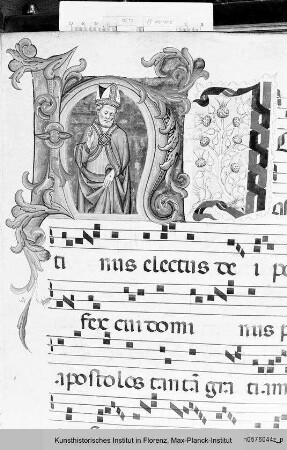 ti nus electus de i po
fex cui domi nus p
apostolos tantā gra tiam
Kunsthistorisches Institut in Florenz, Max-Planck-Institut